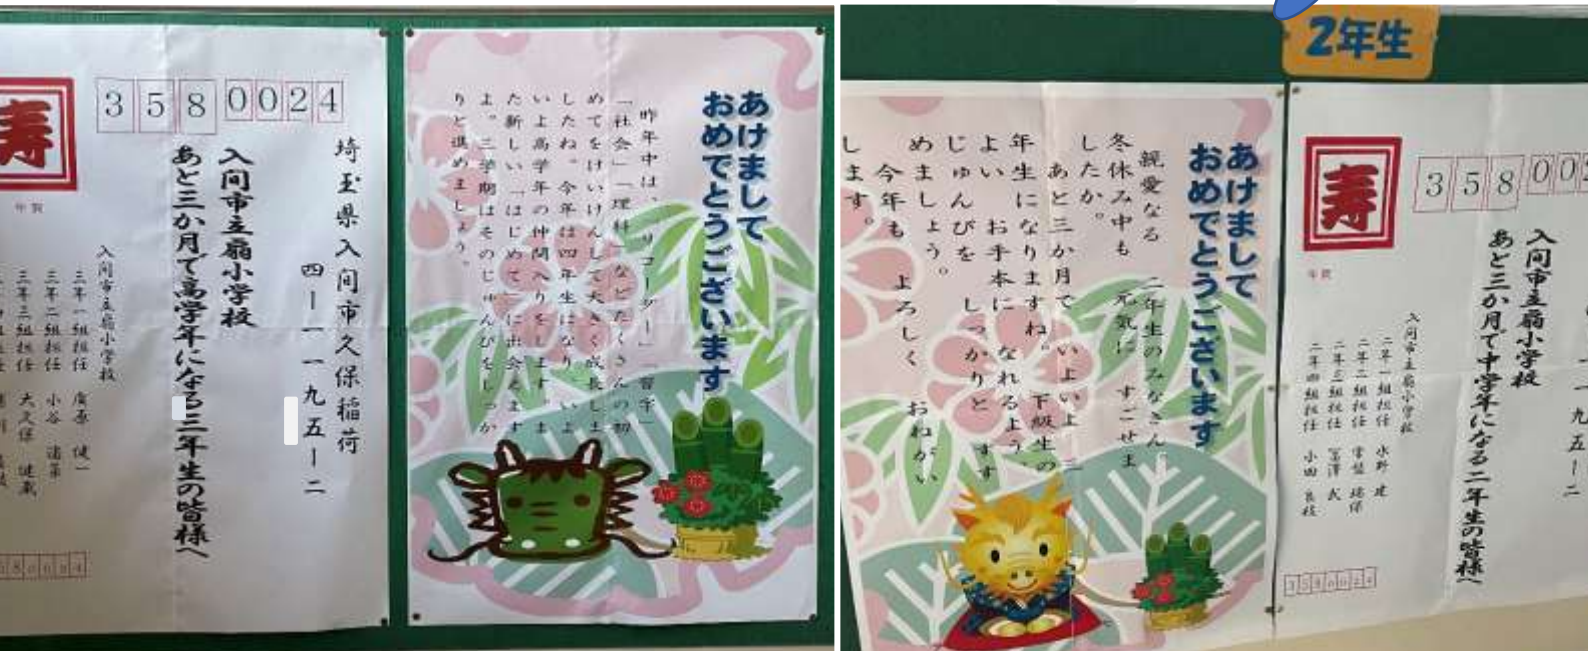 358 0024
寿
年賀
埼玉県入間市久保稲荷
四ー一一九五ー二
入間市立扇小学校
あと三か月で高学年になる三年生の皆様へ
入間市立扇小学校
三年一組担任 廣原 健一
三年二組担任 小谷
三年三組担任 大久保
あけまして
おめでとうございます
昨年中は、「リコーダー」「習字」
「社会」「理科」などたくさんの初
めてをけいけんして大きく成長しま
したね。今年は四年生になり、いよ
いよ高学年の仲間入りをします。ま
た新しい「はじめて」に出会えます
よ。三学期はそのじゅんびをしっか
りと進めましょう。
2年生
あけまして
おめでとうございます
親愛なる 二年生のみなさん。
冬休み中も 元気に すごせま
したか。
あと三か月で いよいよ 三
年生になりますね。下級生の
よい お手本に なれるよう、
じゅんびを しっかりと すす
めましょう。
今年も よろしく おねがい
します。
358 002
寿
年賀
一一九五ー二
入間市立扇小学校
あと三か月で中学年になる二年生の皆様へ
入間市立扇小学校
二年一組担任 水野 建
二年二組担任 常盤 瑞保
二年三組担任 冨澤 武
二年四組担任 小田 良枝
3580024